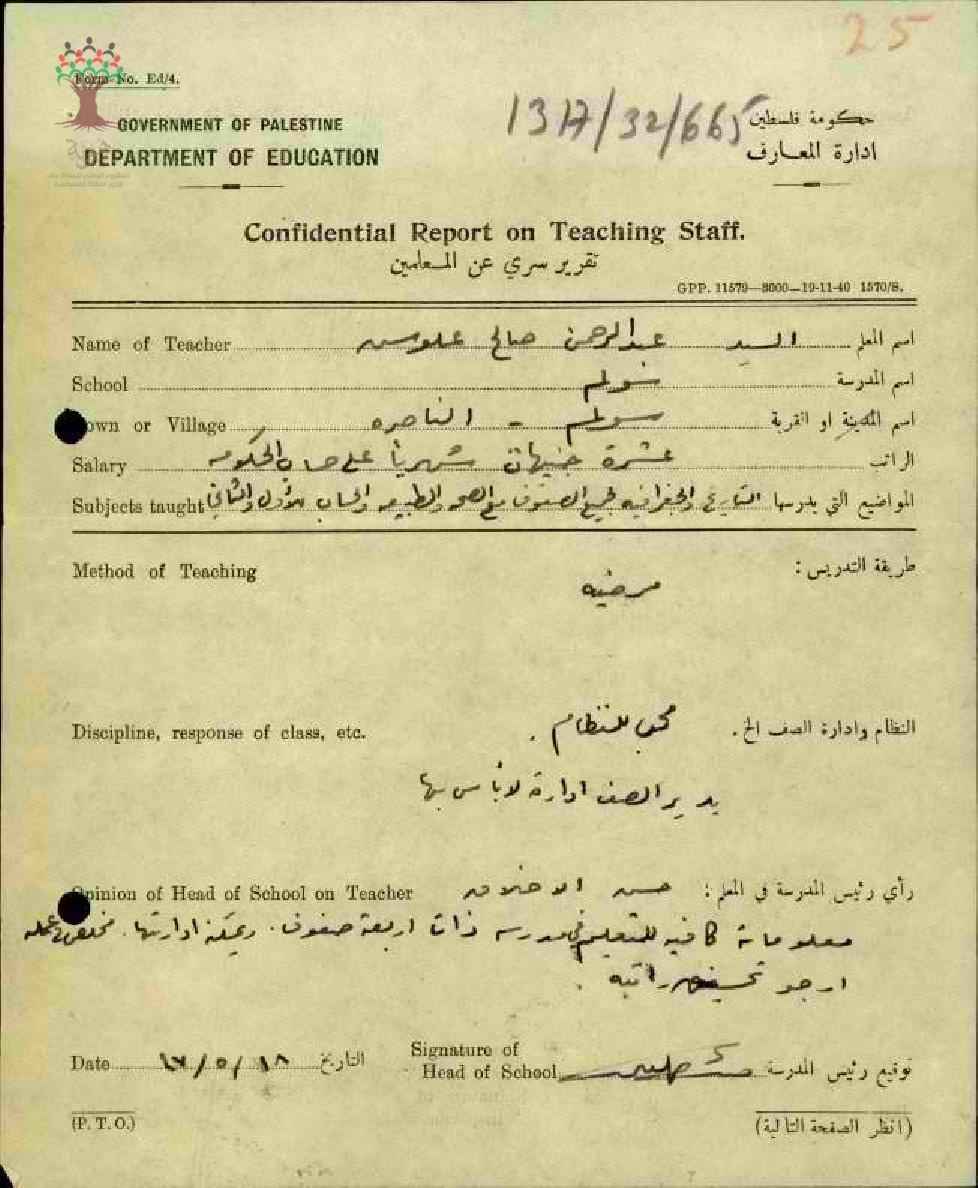 25
Form No. Ed/4.
GOVERNMENT OF PALESTINE
DEPARTMENT OF EDUCATION
1317/32/665
حكومة فلسطين
ادارة المعارف
Confidential Report on Teaching Staff.
تقرير سري عن المعلمين
GPP. 11579—3000—19-11-40 1570/S.
Name of Teacher السيد عبد الرحمن صالح اسم المعلم
School سولم اسم المدرسة
own or Village سولم - الناصره اسم المدينة او القرية
Salary عشرة جنيهات شهرياً على حساب الحكومه الراتب
Subjects taught التاريخ والجغرافيه لجميع الصفوف مع الصحه والطبيعه والحساب للأول والثاني المواضيع التي يدرسها
Method of Teaching طريقة التدريس :
مرضيه
Discipline, response of class, etc. محب للنظام . النظام وادارة الصف الخ.
يدير الصف ادارة لا بأس بها
Opinion of Head of School on Teacher حسن الاخلاق رأي رئيس المدرسة في المعلم :
معلوماته كافيه للتعليم في مدرسه ذات اربعة صفوف. ويمكنه ادارتها. مخلص في عمله
ارجو تحسين راتبه .
Date ١٨/٥/ التاريخ
Signature of
Head of School توقيع رئيس المدرسة
(P. T. O.) (انظر الصفحة التالية)